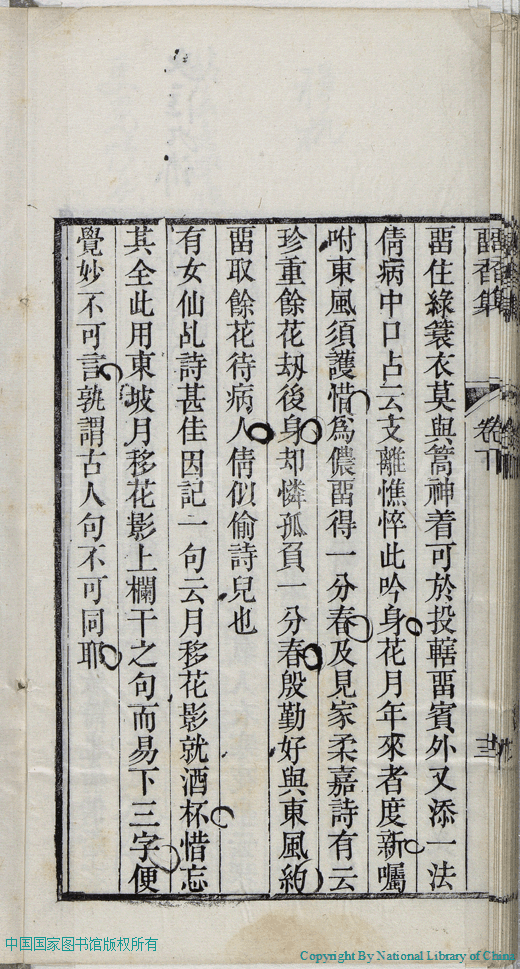 畱香集
卷下
畱住綠簑衣莫與篙神着可於投轄畱賓外又添一法
倩病中口占云支離憔悴此吟身花月年來者度新囑
咐東風須護惜爲儂畱得一分春及見家柔嘉詩有云
珍重餘花刼後身却憐孤負一分春殷勤好與東風約
畱取餘花待病人倩似偷詩兒也
有女仙乩詩甚佳因記一句云月移花影就酒杯惜忘
其全此用東坡月移花影上欄干之句而易下三字便
覺妙不可言孰謂古人句不可同耶
中国国家图书馆版权所有
Copyright By National Library of China